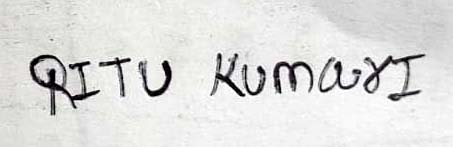 RITU KUMarI